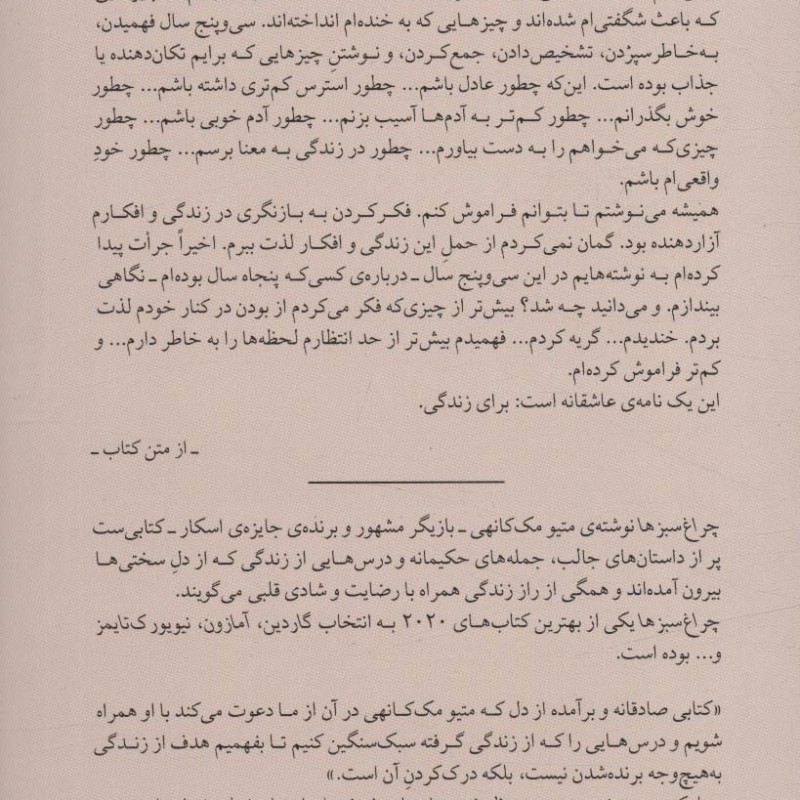 که باعث شگفتی‌ام شده‌اند و چیزهایی که به خنده‌ام انداخته‌اند. سی‌وپنج سال فهمیدن،
به‌خاطرسپردن، تشخیص‌دادن، جمع‌کردن، و نوشتنِ چیزهایی که برایم تکان‌دهنده یا
جذاب بوده است. این‌که چطور عادل باشم... چطور استرس کم‌تری داشته باشم... چطور
خوش بگذرانم... چطور کم‌تر به آدم‌ها آسیب بزنم... چطور آدم خوبی باشم... چطور
چیزی‌که می‌خواهم را به دست بیاورم... چطور در زندگی به معنا برسم... چطور خودِ
واقعی‌ام باشم.
همیشه می‌نوشتم تا بتوانم فراموش کنم. فکرکردن به بازنگری در زندگی و افکارم
آزاردهنده بود. گمان نمی‌کردم از حملِ این زندگی و افکار لذت ببرم. اخیراً جرأت پیدا
کرده‌ام به نوشته‌هایم در این سی‌وپنج سال ـ درباره‌ی کسی‌که پنجاه سال بوده‌ام ـ نگاهی
بیندازم. و می‌دانید چه شد؟ بیش‌تر از چیزی‌که فکر می‌کردم از بودن در کنار خودم لذت
بردم. خندیدم... گریه کردم... فهمیدم بیش‌تر از حد انتظارم لحظه‌ها را به خاطر دارم... و
کم‌تر فراموش کرده‌ام.
این یک نامه‌ی عاشقانه است: برای زندگی.
ـ از متن کتاب ـ
چراغ‌سبزها نوشته‌ی متیو مک‌کانهی ـ بازیگر مشهور و برنده‌ی جایزه‌ی اسکار ـ کتابی‌ست
پر از داستان‌های جالب، جمله‌های حکیمانه و درس‌هایی از زندگی که از دلِ سختی‌ها
بیرون آمده‌اند و همگی از راز زندگی همراه با رضایت و شادی قلبی می‌گویند.
چراغ‌سبزها یکی از بهترین کتاب‌های ۲۰۲۰ به انتخاب گاردین، آمازون، نیویورک‌تایمز
و... بوده است.
«کتابی صادقانه و برآمده از دل که متیو مک‌کانهی در آن از ما دعوت می‌کند با او همراه
شویم و درس‌هایی را که از زندگی گرفته سبک‌سنگین کنیم تا بفهمیم هدف از زندگی
به‌هیچ‌وجه برنده‌شدن نیست، بلکه درک‌کردنِ آن است.»